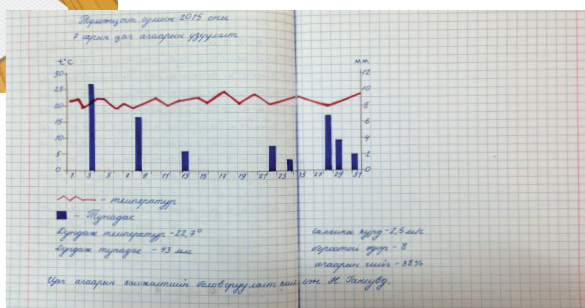 сумын 2015 оны
7 сарын цаг агаарын үзүүлэлт
t°C
мм
30
25
20
15
10
5
0
12
10
8
6
4
2
0
1 3 5 7 9 11 13 15 17 19 21 23 25 27 29 31
– температур
– Тунадас
Дундаж температур – 22,7°
Дундаж тунадас – 43 мм
Салхины хурд – 2,5 м/с
бороотой өдөр – 8
агаарын чийг – 38%
Цаг агаарын хэмжилтийн боловсруулалт хийсэн Н.